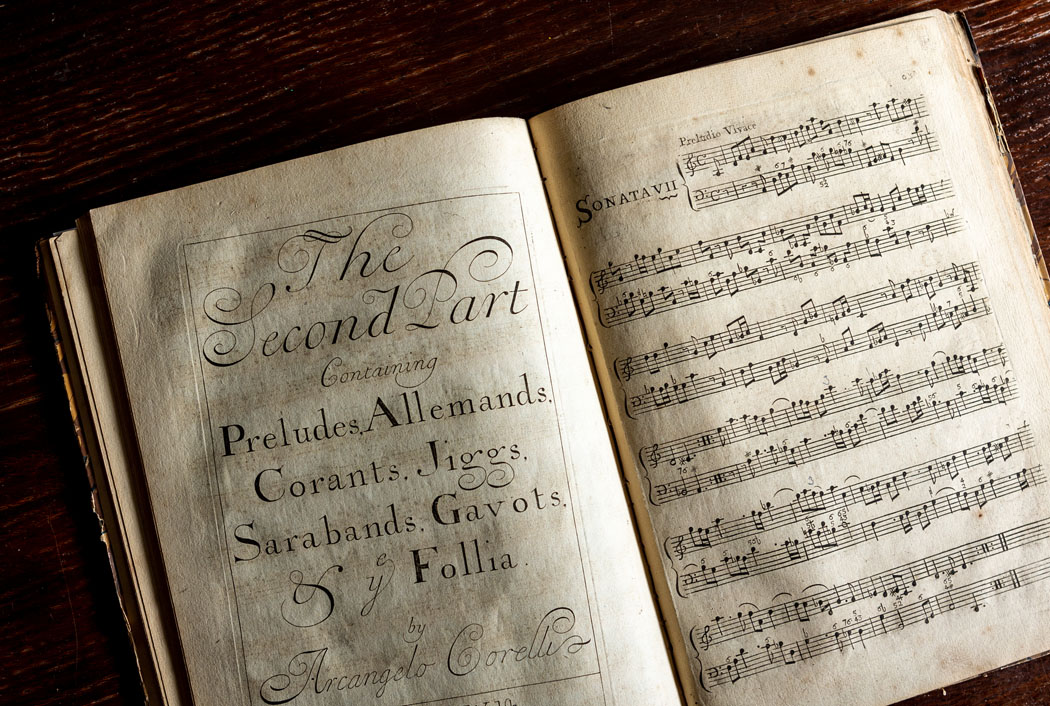 The
Second Part
Containing
Preludes, Allemands,
Corants, Jiggs,
Sarabands, Gavots,
& yᵉ Follia.
by
Arcangelo Corelli
Preludio Vivace
SONATA VII